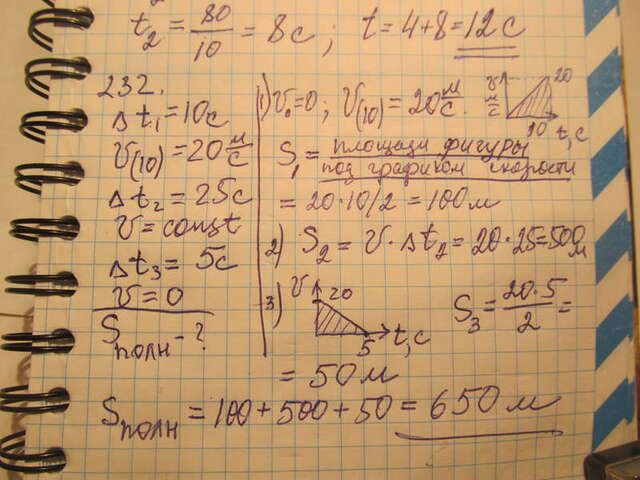 t₂ = 80/10 = 8с; t = 4+8 = 12с
232.
Δt₁ = 10с
V(10) = 20 м/с
Δt₂ = 25с
V = const
Δt₃ = 5с
V = 0
Sполн - ?
1) V₀ = 0; V(10) = 20 м/с.
V м/с
20
10 t,с
S₁ = площади фигуры
под графиком скорости
= 20·10/2 = 100м
2) S₂ = V·Δt₂ = 20·25 = 500м
3) V
20
5 t,с
S₃ = 20·5/2 =
= 50м
Sполн = 100 + 500 + 50 = 650м